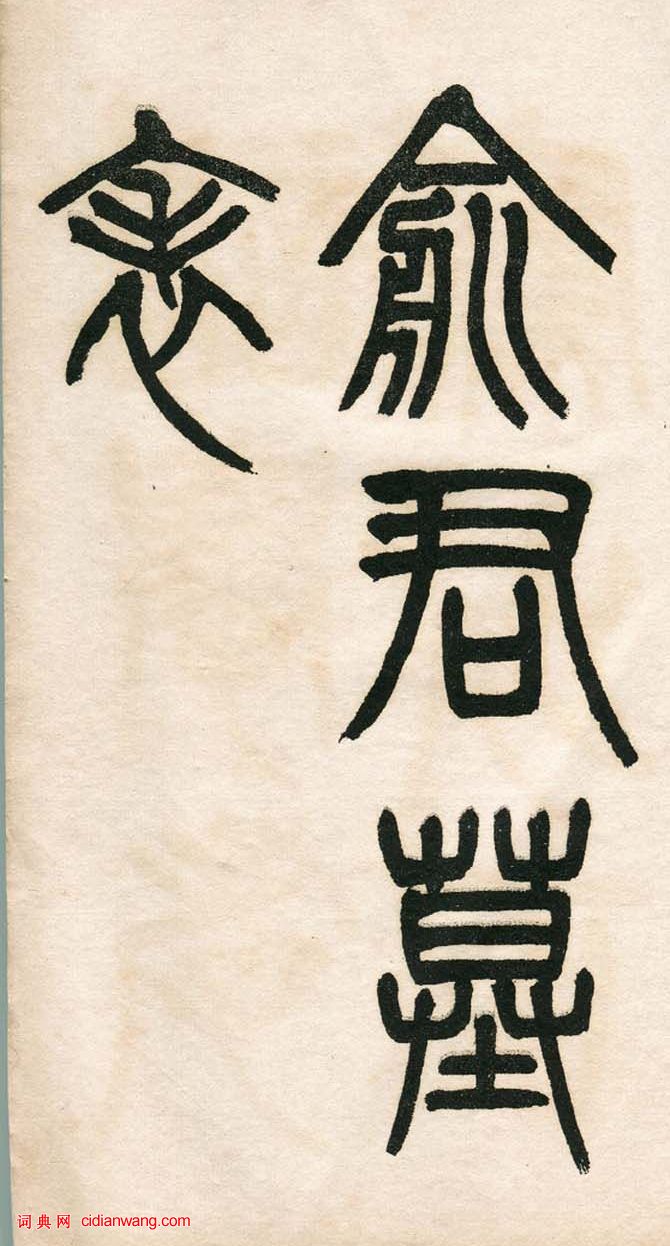 俞君墓
表
词典网 cidianwang.com